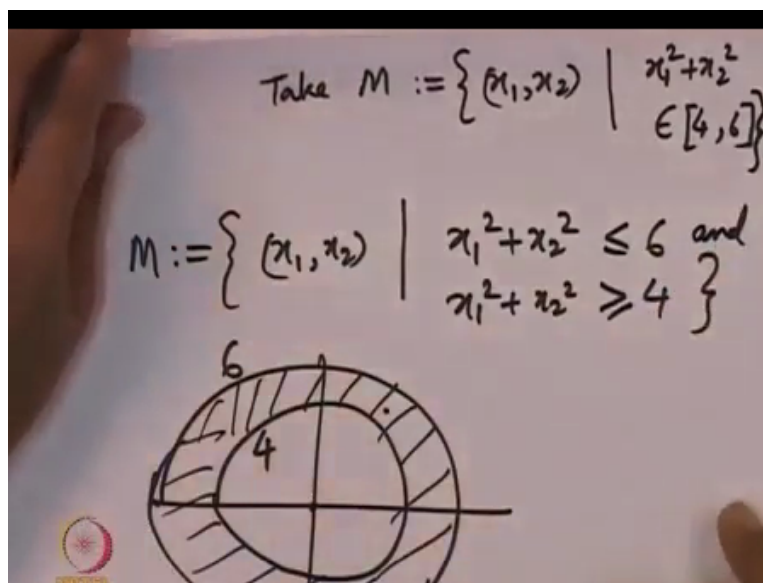 Take M := {(x₁,x₂) | x₁²+x₂² ∈ [4,6]}
M := { (x₁,x₂) | x₁²+x₂² ≤ 6 and
x₁²+x₂² ≥ 4 }
6
4